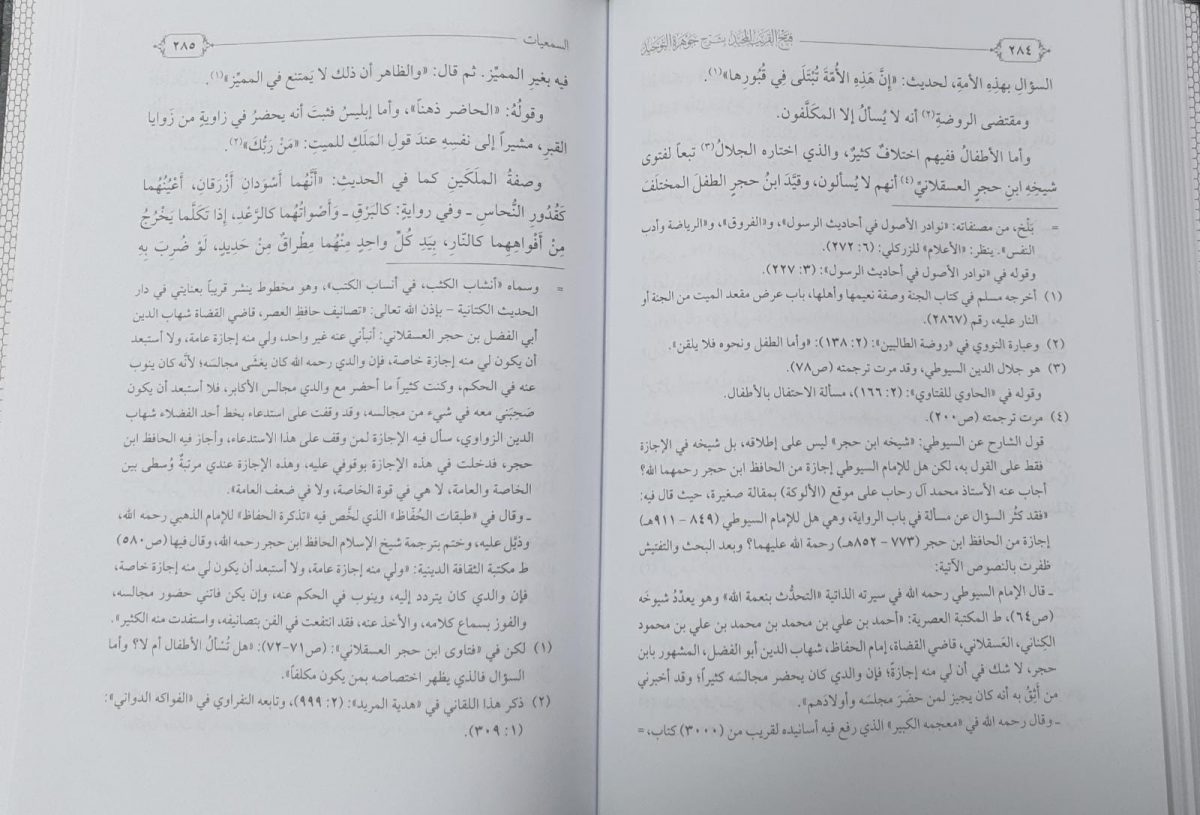 ٢٨٤
فتح القريب المجيد بشرح جوهرة التوحيد
السؤال بهذِهِ الأمةِ، لحديث: «إنَّ هَذِهِ الأُمَّةَ تُبْتَلَى فِي قُبُورِها»(١).
ومقتضى الروضةِ(٢) أنه لا يُسألُ إلا المكَلَّفون.
وأما الأطفالُ ففيهم اختلافٌ كثيرٌ، والذي اختاره الجلالُ(٣) تبعاً لفتوى
شيخِهِ ابنِ حجرٍ العسقلانيِّ(٤) أنهم لا يُسألون، وقيَّدَ ابنُ حجرٍ الطفلَ المختلَفَ
= بَلْخ، من مصنفاته: «نوادر الأصول في أحاديث الرسول»، و«الفروق»، و«الرياضة وأدب
النفس». ينظر: «الأعلام» للزركلي: (٦: ٢٧٢).
وقوله في «نوادر الأصول في أحاديث الرسول»: (٣: ٢٢٧).
(١) أخرجه مسلم في كتاب الجنة وصفة نعيمها وأهلها، باب عرض مقعد الميت من الجنة أو
النار عليه، رقم (٢٨٦٧).
(٢) وعبارة النووي في «روضة الطالبين»: (٢: ١٣٨): «وأما الطفل ونحوه فلا يلقن».
(٣) هو جلال الدين السيوطي، وقد مرت ترجمته (ص٧٨).
وقوله في «الحاوي للفتاوي»: (٢: ١٦٦)، مسألة الاحتفال بالأطفال.
(٤) مرت ترجمته (ص٢٠٠).
قول الشارح عن السيوطي: «شيخه ابن حجر» ليس على إطلاقه، بل شيخه في الإجازة
فقط على القول به، لكن هل للإمام السيوطي إجازة من الحافظ ابن حجر رحمهما الله؟
أجاب عنه الأستاذ محمد آل رحاب على موقع (الألوكة) بمقالة صغيرة، حيث قال فيه:
«فقد كثُر السؤال عن مسألة في باب الرواية، وهي هل للإمام السيوطي (٨٤٩ – ٩١١هـ)
إجازة من الحافظ ابن حجر (٧٧٣ – ٨٥٢هـ) رحمة الله عليهما؟ وبعد البحث والتفتيش
ظفرت بالنصوص الآتية:
ـ قال الإمام السيوطي رحمه الله في سيرته الذاتية «التحدُّث بنعمة الله» وهو يعدِّدُ شيوخَه
(ص٦٤)، ط المكتبة العصرية: «أحمد بن علي بن محمد بن محمد بن علي بن محمود
الكِناني، العَسقلاني، قاضي القضاة، إمام الحفاظ، شهاب الدين أبو الفضل، المشهور بابن
حجر، لا شك في أن لي منه إجازةً؛ فإن والدي كان يحضر مجالسَه كثيراً؛ وقد أخبرني
من أَثِقُ به أنه كان يجيز لمن حضَرَ مجلسَه وأولادَهم».
ـ وقال رحمه الله في «معجمه الكبير» الذي رفع فيه أسانيده لقريب من (٣٠٠٠) كتاب، =
السمعيات
٢٨٥
فيه بغيرِ المميِّز. ثم قال: «والظاهر أن ذلك لا يَمتنع في المميِّز»(١).
وقولُهُ: «الحاضر ذهناً»، وأما إبليسُ فثبتَ أنه يحضرُ في زاويةٍ من زَوايا
القبرِ، مشيراً إلى نفسِهِ عندَ قولِ المَلَكِ للميتِ: «مَنْ رَبُّكَ»(٢).
وصفةُ الملَكَينِ كما في الحديث: «أَنَّهُما أَسْوَدانِ أَزْرَقانِ، أَعْيُنُهُما
كَقُدُورِ النُّحاسِ ـ وفي روايةٍ: كالبَرْقِ ـ وَأَصْواتُهُما كالرَّعْد، إِذَا تَكَلَّما يَخْرُجُ
مِنْ أَفْواهِهِما كالنَّارِ، بِيَدِ كُلِّ واحِدٍ مِنْهُما مِطْراقٌ مِنْ حَدِيدٍ، لَوْ ضُرِبَ بِهِ
= وسماه «أنشاب الكثب، في أنساب الكتب»، وهو مخطوط ينشر قريباً بعنايتي في دار
الحديث الكتانية – بإذن الله تعالى: «تصانيف حافظِ العصر، قاضي القضاة شهاب الدين
أبي الفضل بن حجر العسقلاني: أنبأني عنه غير واحد، ولي منه إجازة عامة، ولا أستبعد
أن يكون لي منه إجازة خاصة، فإن والدي رحمه الله كان يغشَى مجالسَه؛ لأنَّه كان ينوب
عنه في الحكم، وكنت كثيراً ما أحضر مع والدي مجالس الأكابر، فلا أستبعد أن يكون
صَحِبَني معه في شيء من مجالسه، وقد وقفت على استدعاء بخط أحد الفضلاء شهاب
الدين الزواوي، سأل فيه الإجازة لمن وقف على هذا الاستدعاء، وأجاز فيه الحافظ ابن
حجر، فدخلت في هذه الإجازة بوقوفي عليه، وهذه الإجازة عندي مرتبةٌ وُسطى بين
الخاصة والعامة، لا هي في قوة الخاصة، ولا في ضعف العامة».
ـ وقال في «طبقات الحُفّاظ» الذي لخَّص فيه «تذكرة الحفاظ» للإمام الذهبي رحمه الله،
وذيَّل عليه، وختم بترجمة شيخ الإسلام الحافظ ابن حجر رحمه الله، وقال فيها (ص٥٨٠)
ط مكتبة الثقافة الدينية: «ولي منه إجازة عامة، ولا أستبعد أن يكون لي منه إجازة خاصة،
فإن والدي كان يتردد إليه، وينوب في الحكم عنه، وإن يكن فاتني حضور مجالسه،
والفوز بسماع كلامه، والأخذ عنه، فقد انتفعت في الفن بتصانيفه، واستفدت منه الكثير».
(١) لكن في «فتاوى ابن حجر العسقلاني»: (ص٧١-٧٢): «هل تُسْألُ الأطفال أم لا؟ وأما
السؤال فالذي يظهر اختصاصه بمن يكون مكلفاً».
(٢) ذكر هذا اللقاني في «هدية المريد»: (٢: ٩٩٩)، وتابعه النفراوي في «الفواكه الدواني»:
(١: ٣٠٩).